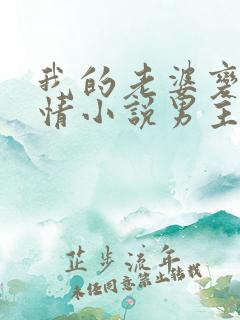 我的老婆变
情小说男主
芷步流年
未经同意禁止转载